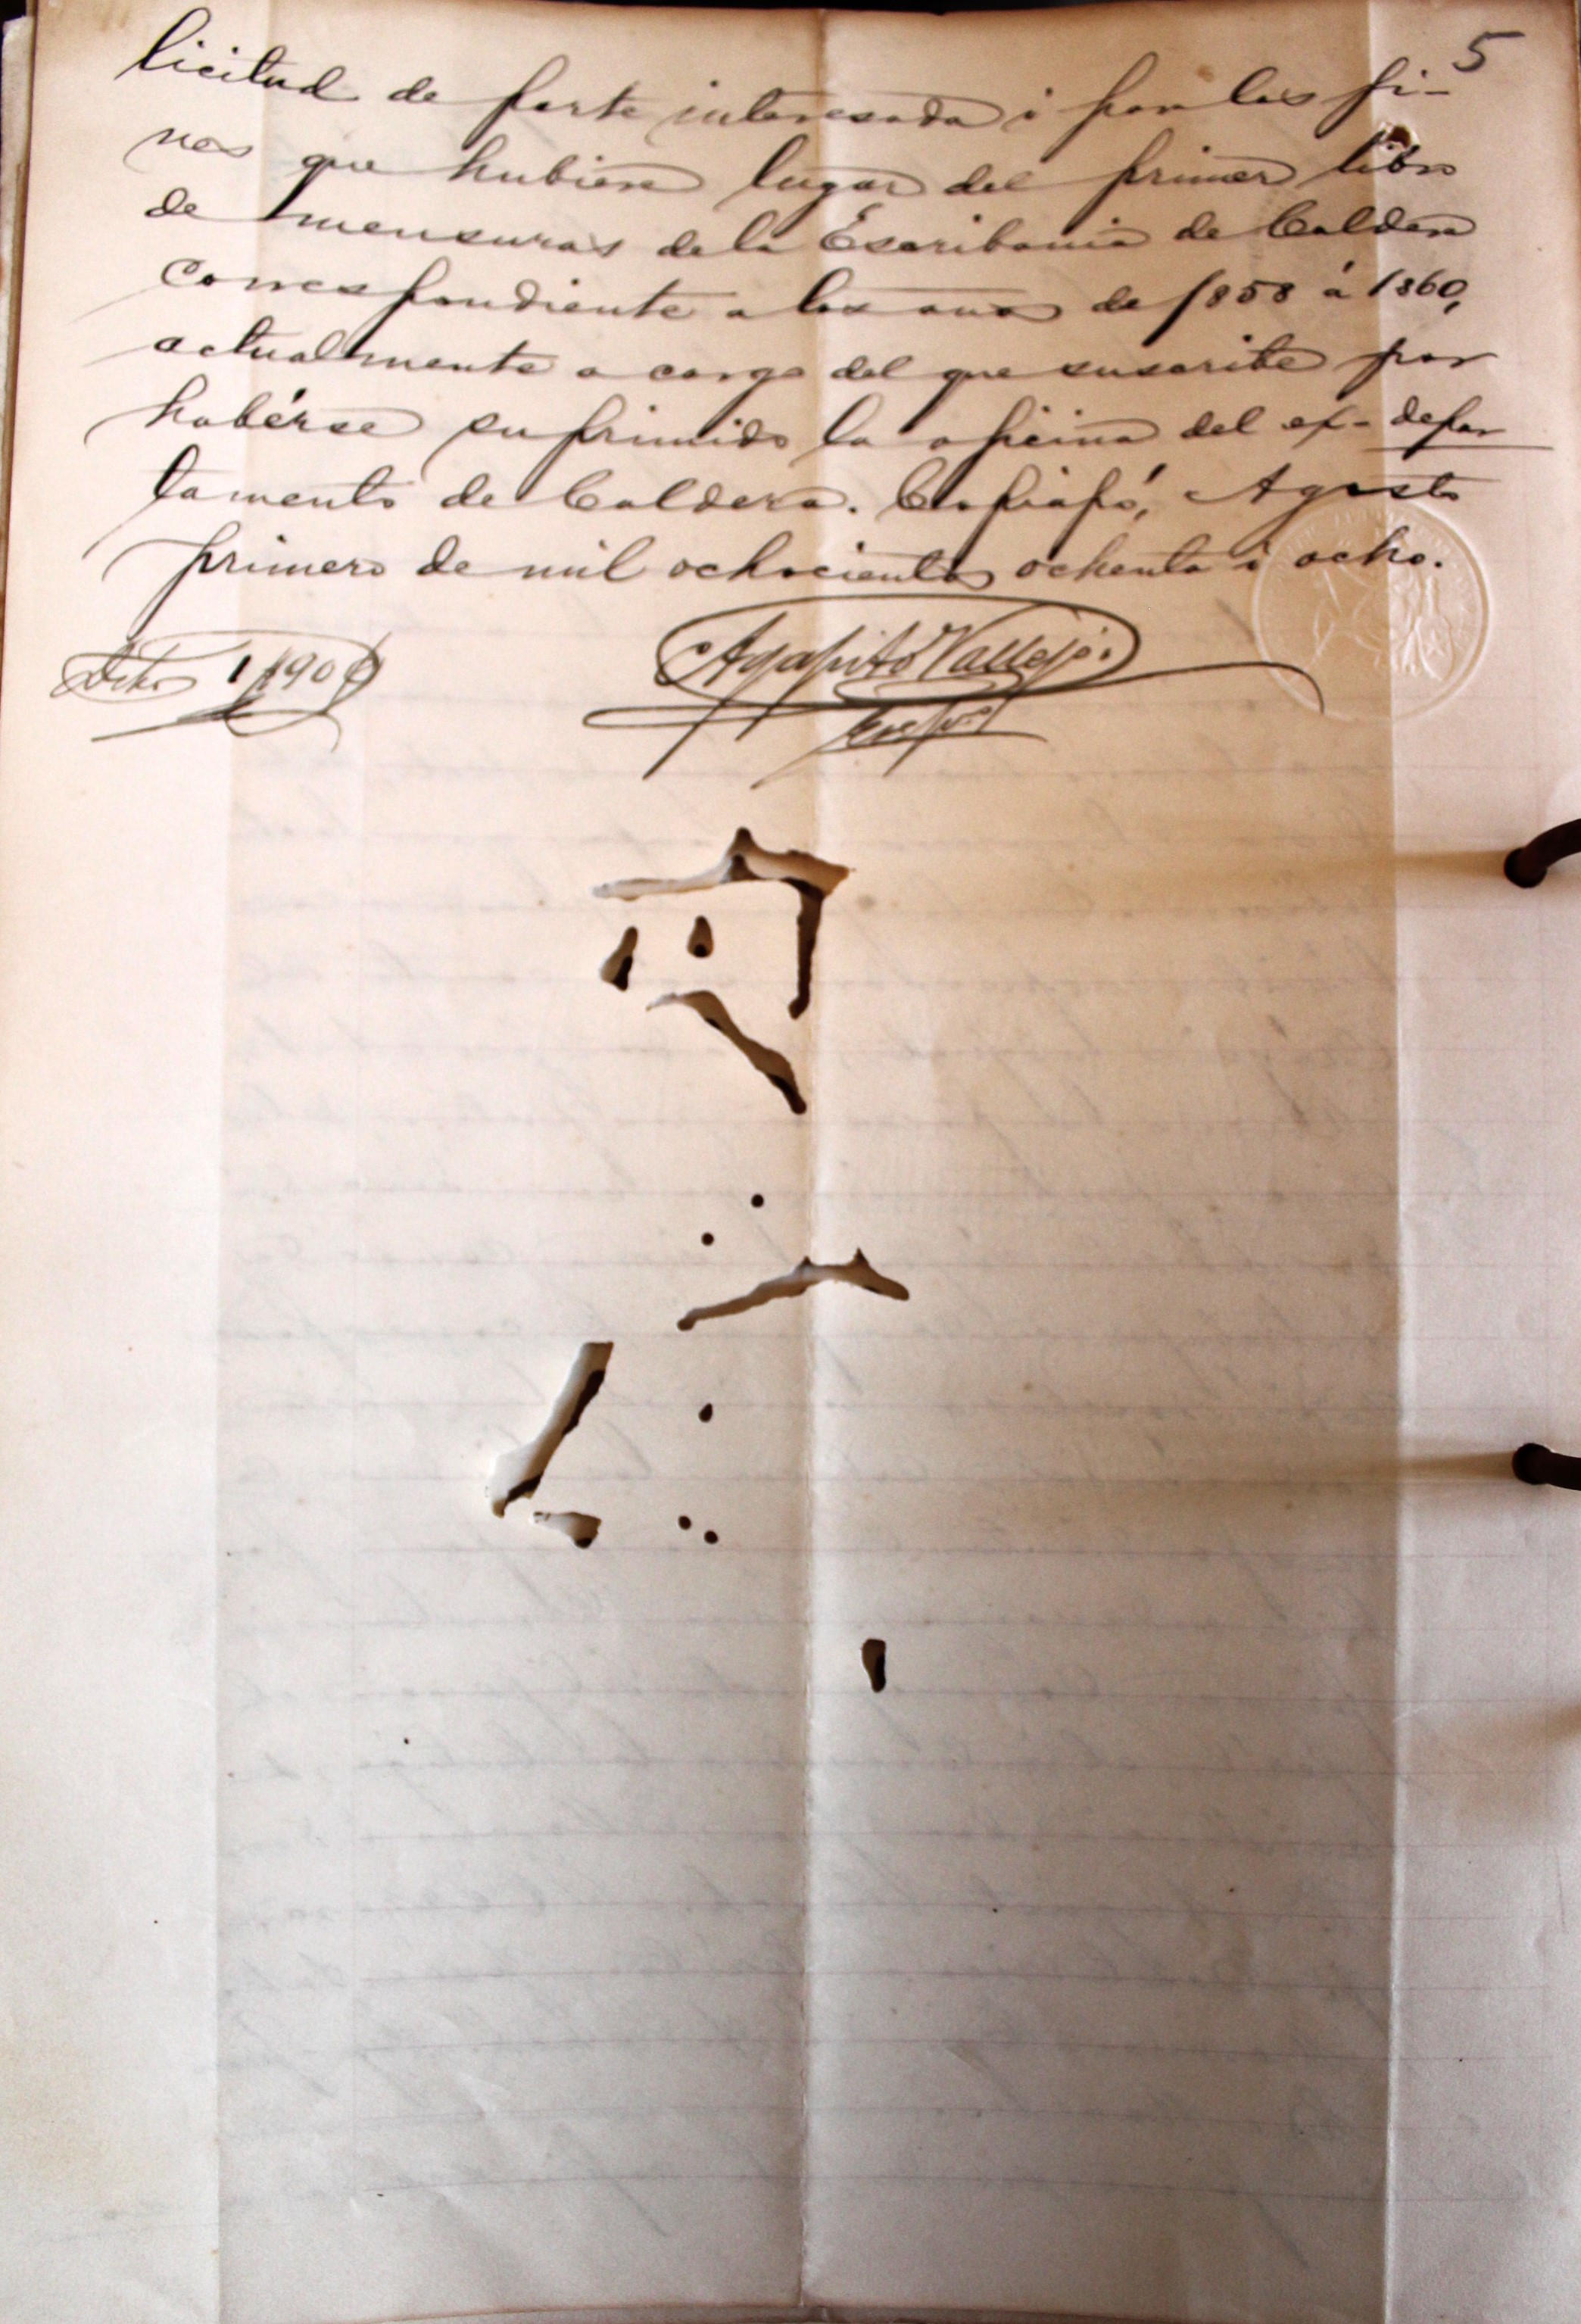 5
licitud de parte interesada i para los fi-
nes que hubiere lugar del primer libro
de mensuras de la Escribania de Caldera
correspondiente a los anos de 1858 á 1860,
actualmente a cargo del que suscribe por
habérse suprimido la oficina del ex-depar
tamento de Caldera. Copiapó, Agosto
primero de mil ochocientos ochenta i ocho.
Agapito Vallejo.